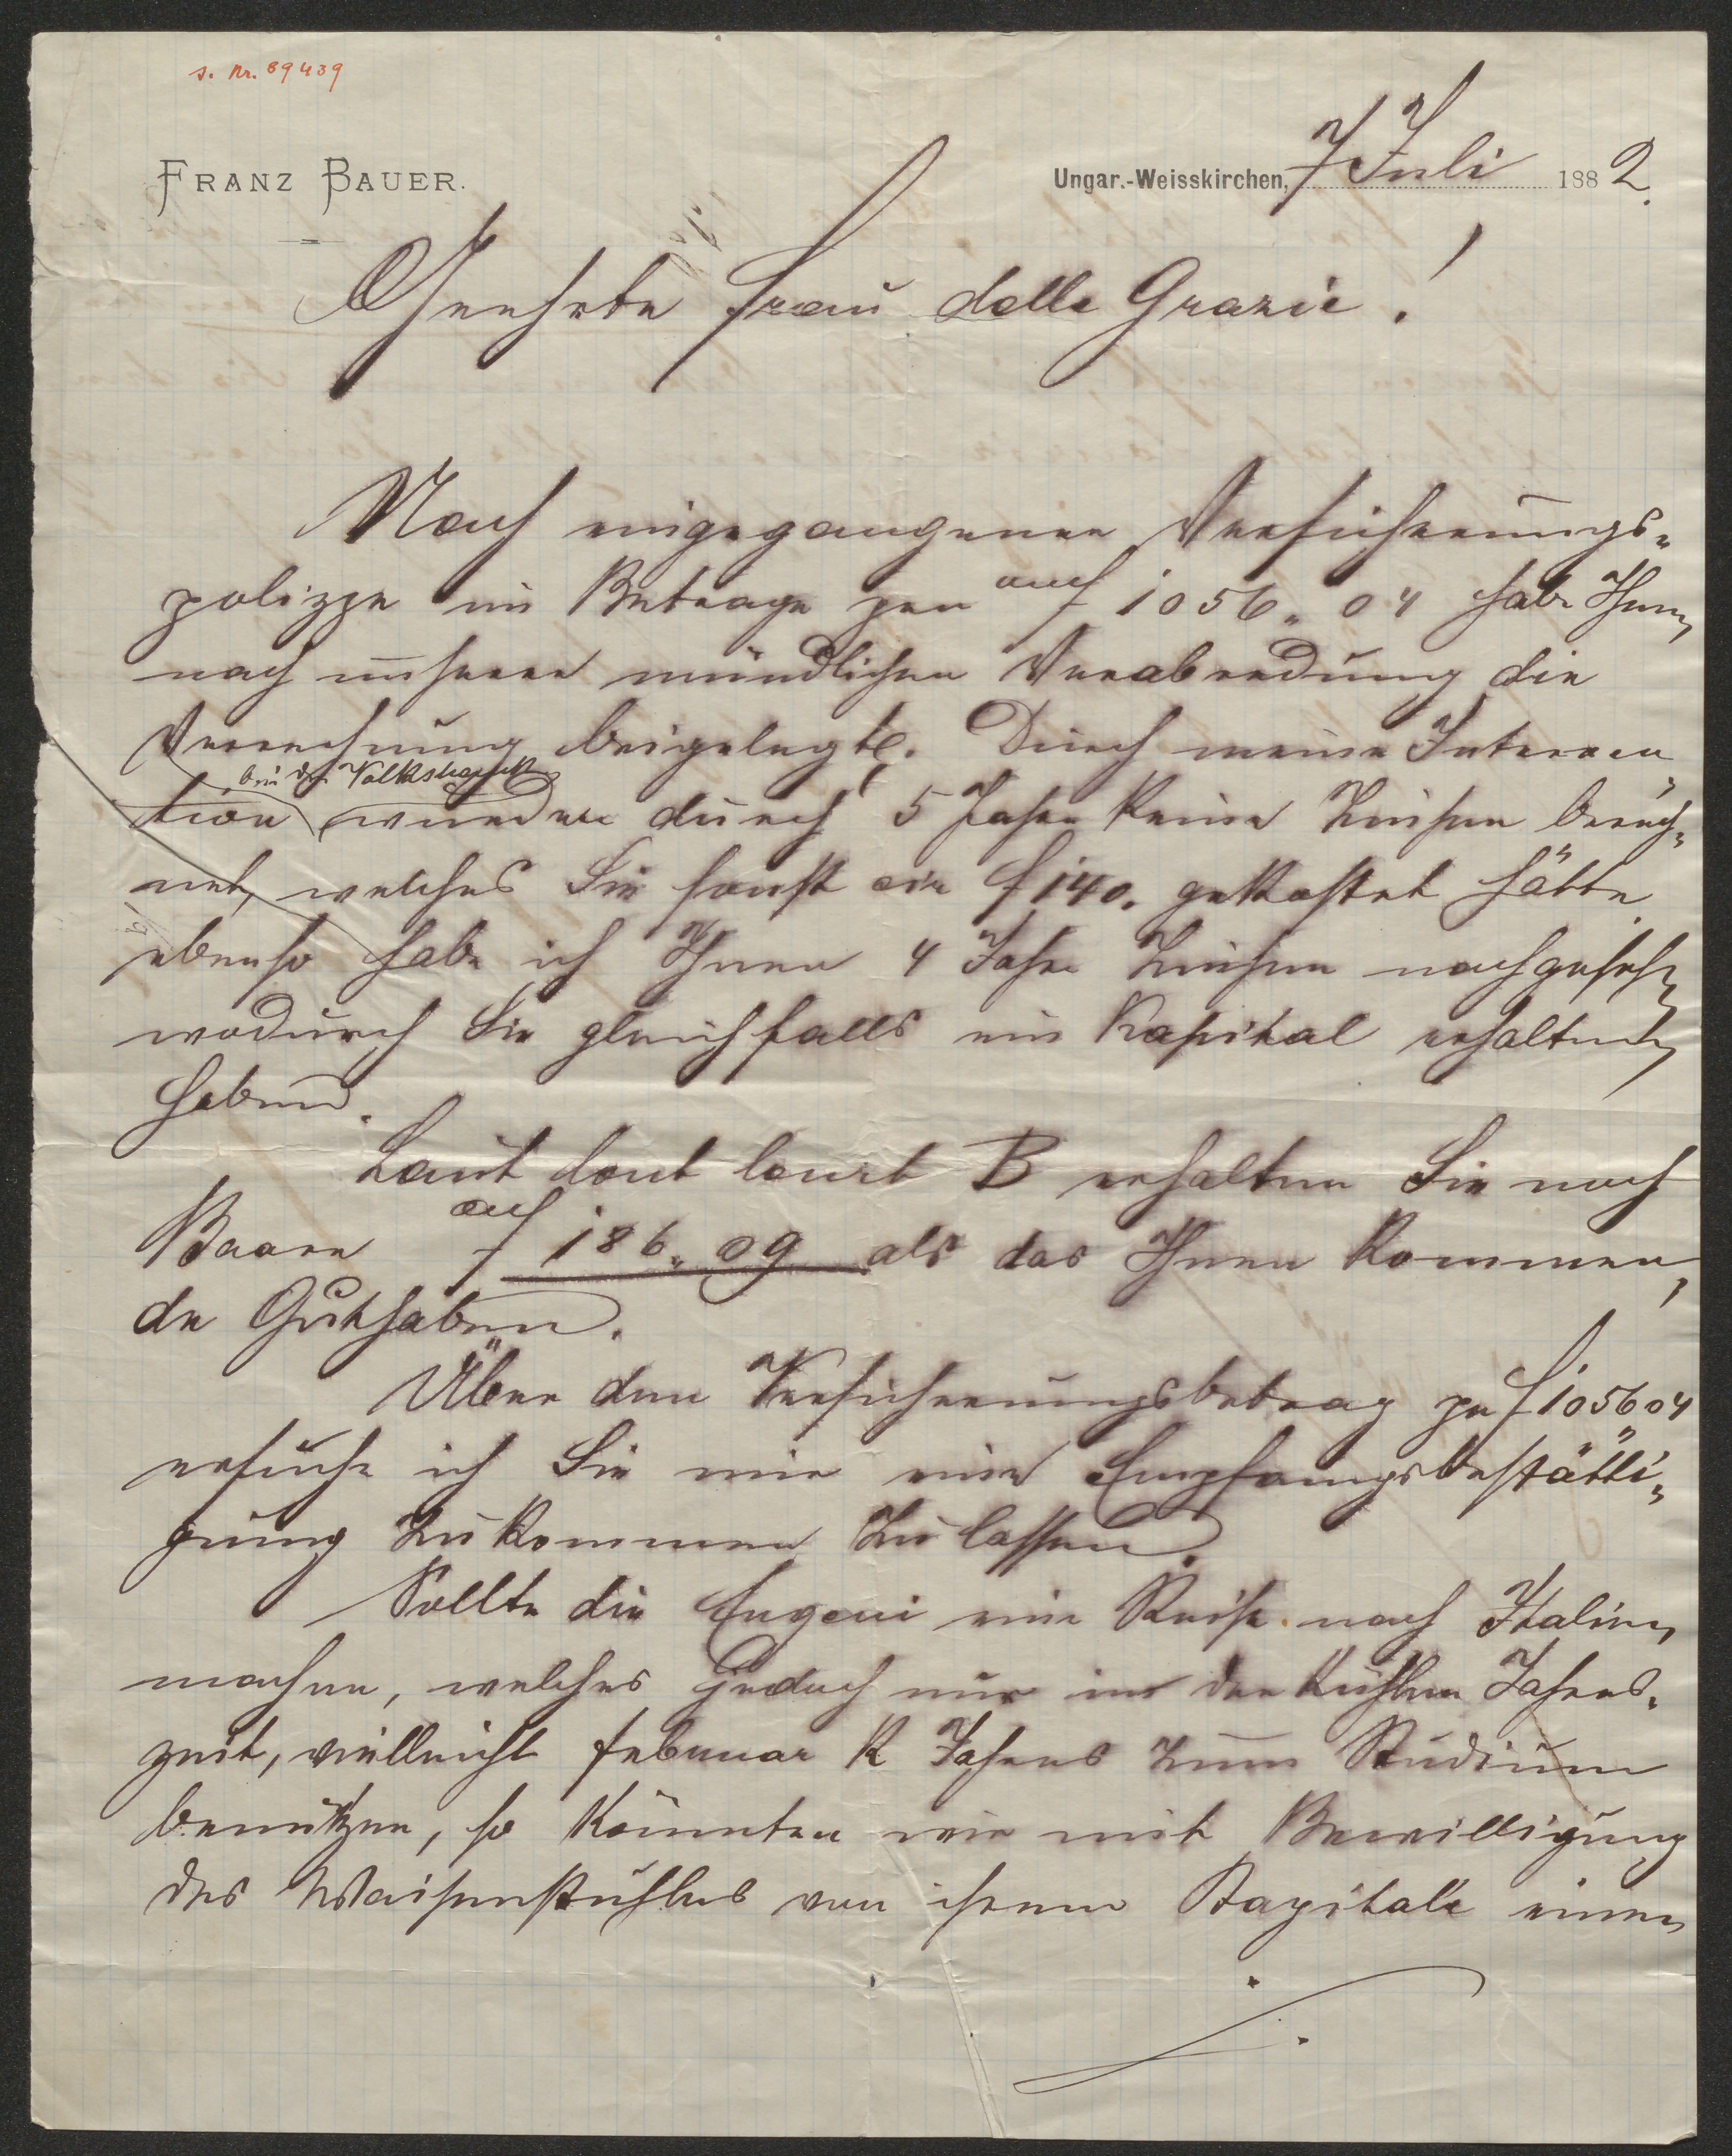 s. Nr. 69439
FRANZ BAUER.
Ungar.-Weisskirchen, 7 Juli 1882.
Geehrte Frau delle Grazie!
Nach eingegangener Versicherungs-
polizze im Betrage per auf f 1056.04 habe Ihnen
nach unserer mündlichen Verabredung die
Verrechnung beigelegt. Durch meine Interven
bei der Volksbank
tion wurden durch 5 Jahre keine Zinsen berech-
net, welches Sie sonst f 140. gekostet hätte
ebenso habe ich Ihnen 4 Jahre Zinsen nachgesehen
wodurch Sie gleichfalls ein Kapital erhalten
haben.
Laut Cont Court B erhalten Sie noch
Baare auf f 186.09 als das Ihnen kommen,
de Guthaben.
Über den Versicherungsbetrag per f 1056 04
ersuche ich Sie mir eine Empfangsbestätti-
gung zukommen zu lassen.
Sollte die Eugeni eine Reise nach Italien
machen, welches jedoch nur in der kühlen Jahres-
zeit, vielleicht februar k Jahres zum Studium
benützen, so könnten wir mit Bewilligung
des Waisenstuhles von ihrem Kapitale einen